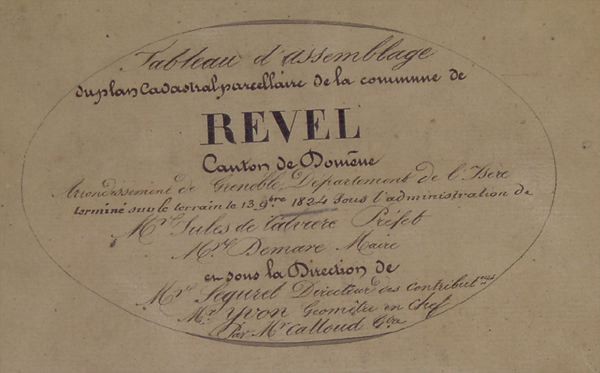 Tableau d'assemblage
du plan Cadastral parcellaire de la commune de
REVEL
Canton de Domêne
Arrondissement de Grenoble, Département de l'Isère
terminé sur le terrain le 13 9bre 1824 sous l'administration de
Mr Jules de Calviere Préfet
Mr Demare Maire
en sous la Direction de
Mr Seguret Directeur des Contributons
Mr Yvon Géomêtre en Chef
Par Mr Calloud